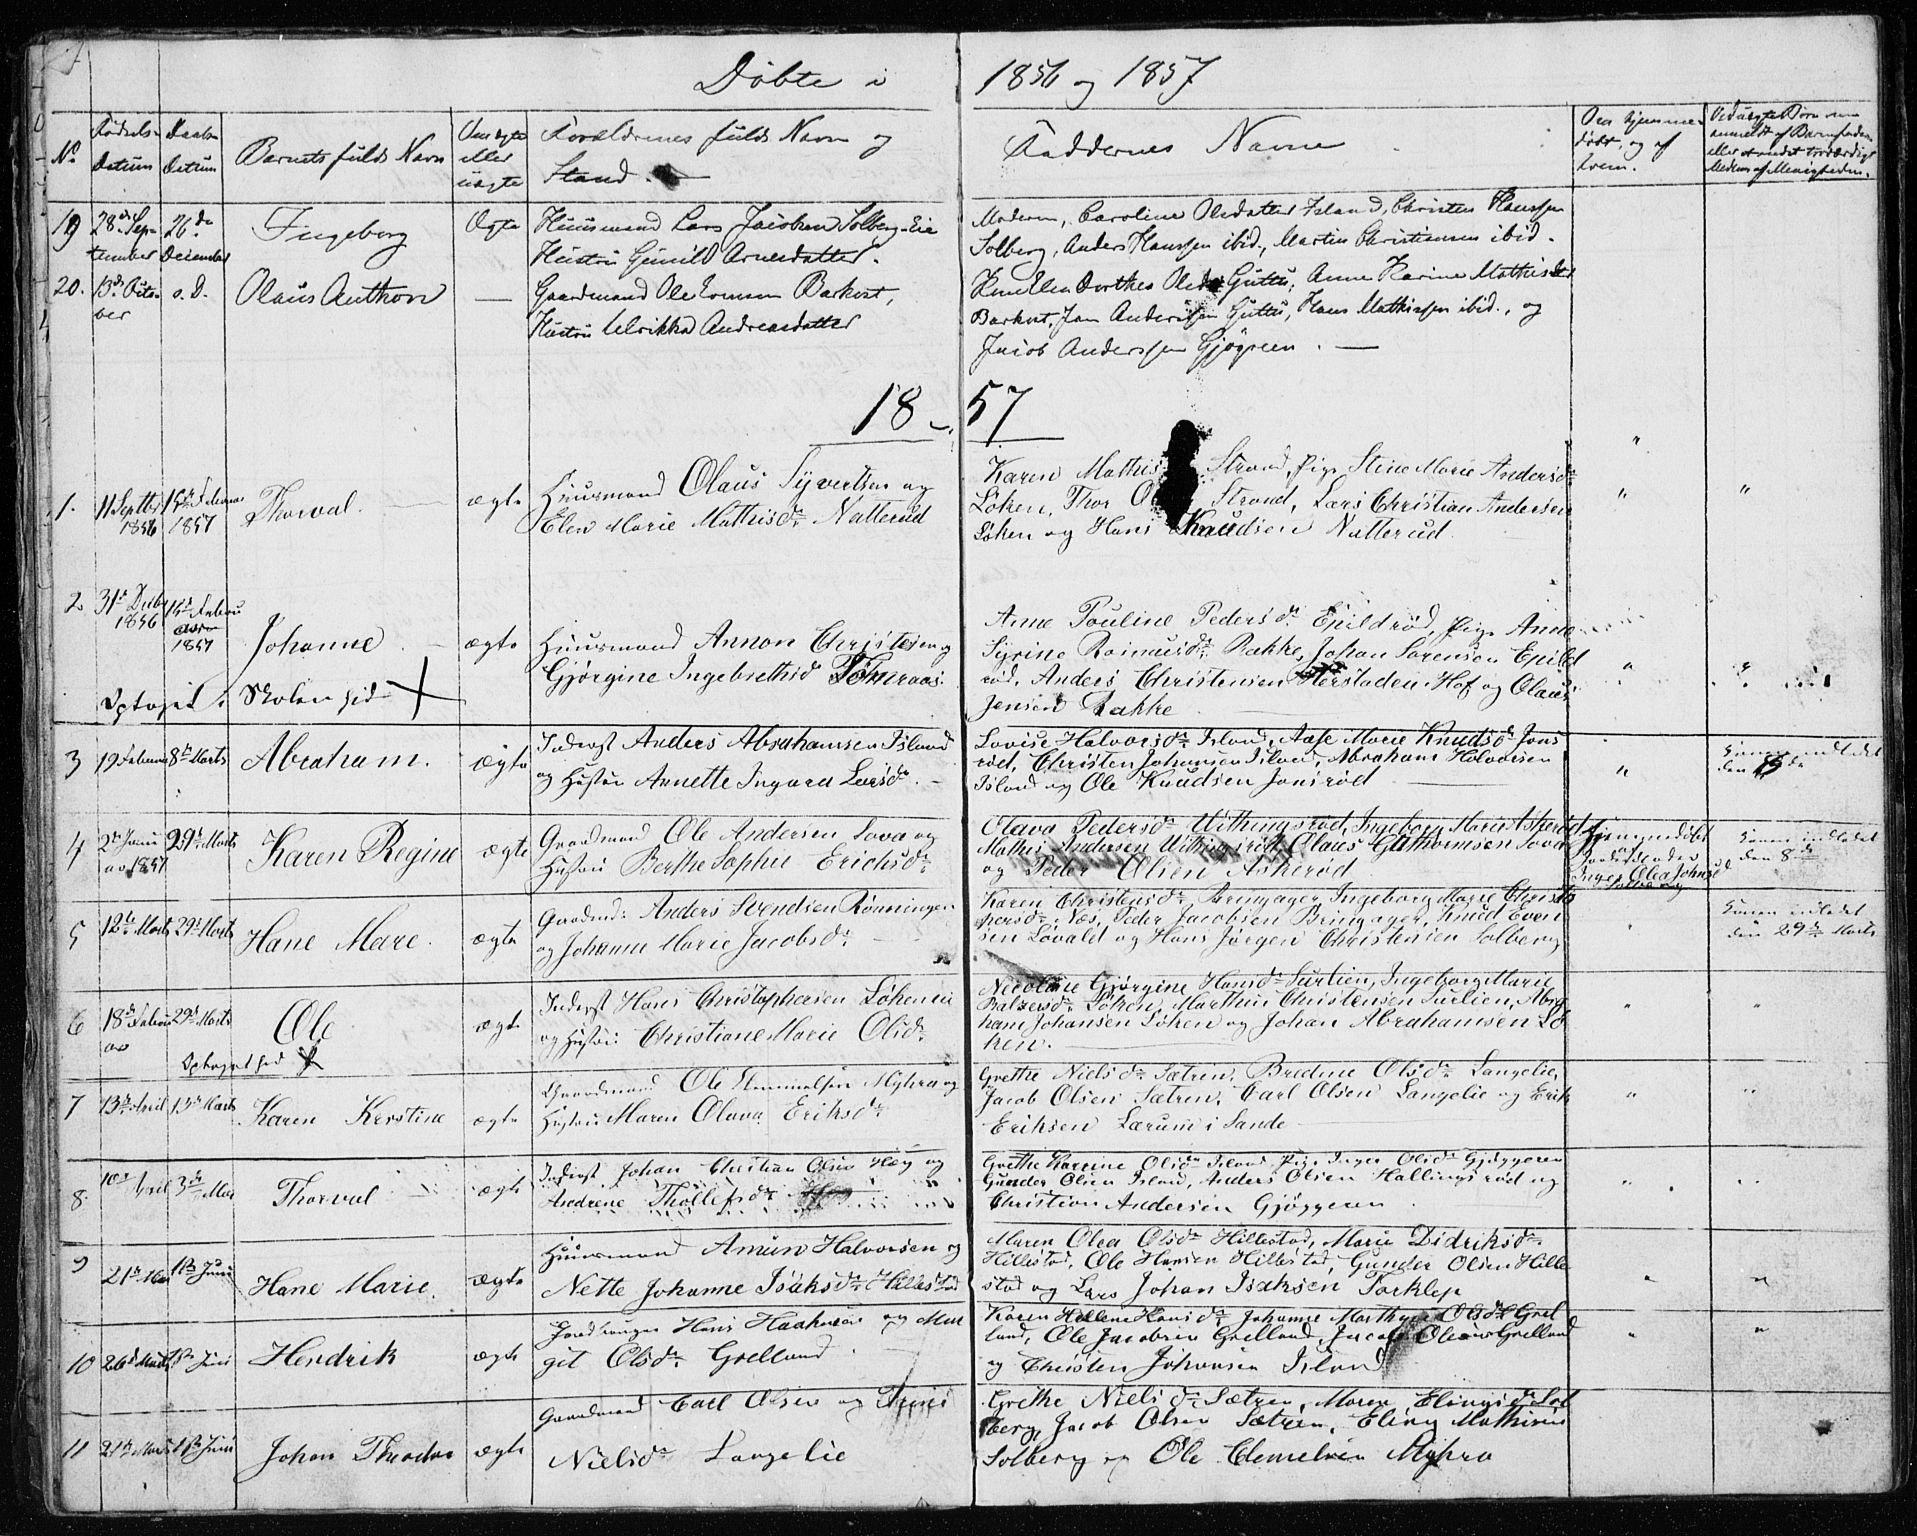 Døbte i 1856 og 1857
No
Fødsels-
Datum
Daabs-
Datum
Barnets fulde Navn
Om ægte
eller
uægte
Forældrenes fulde Navn og
Stand.
Faddernes Navne
Om hjemme-
døbt, og af
hvem.
Ved uægte Børn om
anmeldt af Barnefader
eller et andet troværdigt
Medlem af Menigheden.
19 28de Sep- 26de Ingeborg Ægte Huusmand Lars Jacobsen Solberg-Eie
tember December Hustru Gunild Arnesdatter.
Moderen, Caroline Olsdatter Island, Christen Hanssen
Solberg, Anders Hanssen ibid., Martin Christiansen ibid.
20. 13de Octo- s. D. Olaus Anthon — Gaardmand Ole Barkost,
ber Hustru Ulrikka Andreasdatter
Dorthea Guttu, Anne Karine Mathisdtr
Barkost, Jan Anderssen Guttu, Hans Mathissen ibid., og
Jacob Anderssen Gjøgreen. —
18 - 57
1. 11 Septbr 15de Februar Thorval. ægte Huusmand Olaus Syvertsen og
1856 1857 Elen Marie Mathisdr Natterud
Karen Mathis Strand, Pige Stine Marie Andersdr
Løken, Thor Strand, Lars Christian Andersen
Løken og Hans Knudsen Natterud
2. 31te Decbr 15de Februar
1856 1857 Johanne ægte Huusmand Annon Christensen og
Gjørgine Ingebrethsd
Optaget i Skolen hid X
Anne Pouline Pedersdr Epildrød, Pige Anne
Syrine Rasmusdr Rakke, Johan Sørensen Epild
rød, Anders Christensen Hof og Olaus
Jensen Rakke
3 19 Februar 8de Marts Abraham. ægte Inderst Anders Abrahamsen Island
og Hustru Annette Ingara Larsdr.
Lovise Halvorsdr Island, Aase Marie Knudsdr Jons
rød, Christen Johansen Island, Abraham Halvorsen
Island og Ole Knudsen Jonsrød
Konen indledet
den
4 2de Janu 29de Marts Karen Regine ægte Gaardmand Ole Andersen Sova og
ar 1857 Hustru Berthe Sophie Ericksdr
Olava Pedersdr Withingsrød, Ingeborg Marie Askerød
Mathis Andersen Withingsrød, Olaus Guthormsen Sova
og Peder Olsen Askerød
Hjemmedøbt
af
Jordemoder
Inger Olea Johnsd
Solberg
Konen indledet
den 8de
5 12te Marts 29 Marts Hane Mare. ægte Gaardmd: Anders Svendsen Rønningen
og Johanne Marie Jacobsdr
Karen Christensdr Bringager, Ingeborg Marie Christo
phersdr Næs, Peder Jacobsen Bringager, Knud Even
sen Løvald og Hans Jørgen Christensen Solberg
Konen indledet
den 29de Marts
6 18de Febru 29de Marts Ole ægte Inderst Hans Christophersen Løkeneie
ar og Hustru Christiane Marie Olsdr
Optaget hid X
Nicoline Gjørgine Hansdr Surlien, Ingeborg Marie
Balzersdr Løken, Marthin Christensen Surlien, Abra
ham Johansen Løken og Johan Abrahamsen Lø
ken.
7 13de April 13de Marts Karen Kerstine ægte Gaardmand Ole Myhra og
Hustru Maren Olava Eriksdr
Grethe Nielsdr Sætren, Bredine Olsdr Langelie,
Jacob Olsen Sætren, Carl Olsen Langelie og Erik
Eriksen Lærum i Sande
8. 10de April 3de Mai Thorval ægte Inderst Johan Christian Olsen Hæg og
Andrene Thollefsdr
Grethe Karine Olsdr Island, Pige Inger Olsdr Gjøggeren
Gunder Olsen Island, Anders Olsen Hallingsrød og
Christian Andersen Gjøggeren
9 21de Mai 1ste Juni Hane Marie. ægte Huusmand Amun Halvorsen og
Nette Johanne Isaksdr Hillestad
Maren Olea Olsdr Hillestad, Marie Didriksdr
Hillestad, Ole Hansen Hillestad, Gunder Olsen Hille
stad og Lars Johan Isaksen Torklep
10 26de Marts 1ste Juni Hendrik ægte Jordbruger Hans Haakensen og Mar
git Olsdr Grelland
Karen Hellene Hansdr, Johanne Marthea Olsdr Grel
land, Ole Jacobsen Grelland, Jacob Grelland
og Christen Johansen Island
11 21de Marts 1ste Juni Johan Theodor ægte Gaardmand Carl Olsen og
Nielsdr Langelie
Grethe Nielsdr Sætren, Maren Elingsdr Sol
berg, Jacob Olsen Sætren, Eling Mathisen
Solberg og Ole Clemetsen Myhra